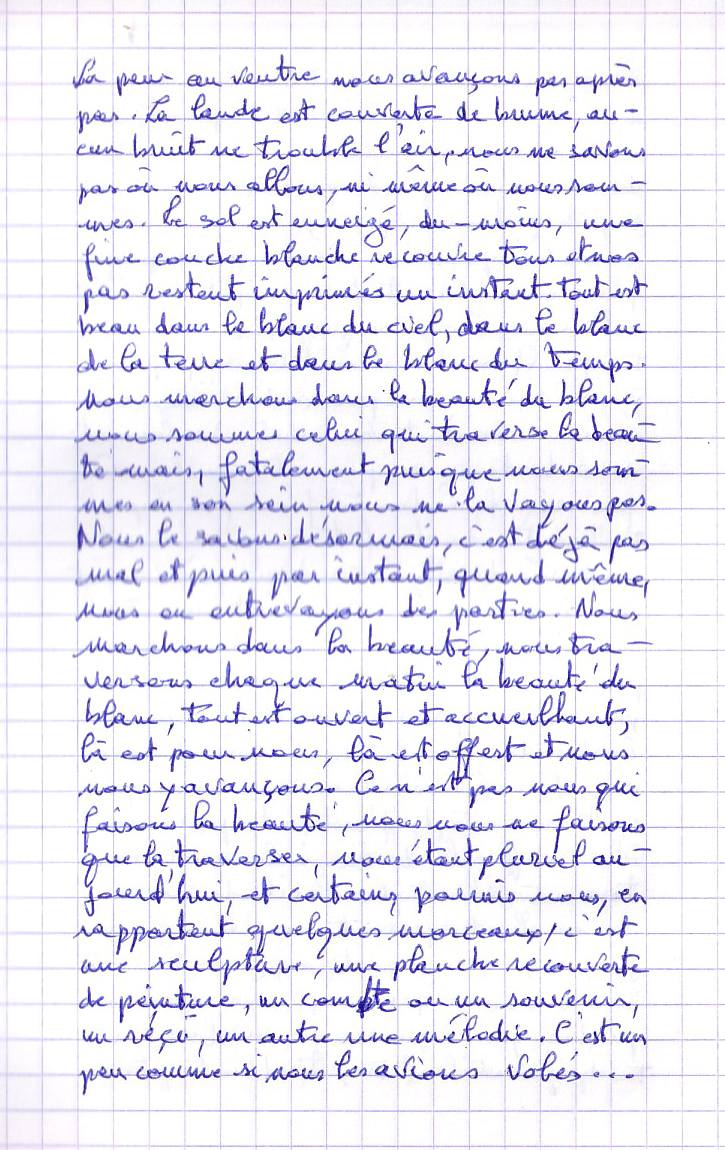 La peur au ventre nous avançons pas après
pas. La lande est couverte de brume, au-
cun bruit ne trouble l'air, nous ne savons
pas où nous allons, ni même où nous som-
mes. Le sol est enneigé, du-moins, une
fine couche blanche recouvre tous et nos
pas restent imprimés un instant. Tout est
beau dans le blanc du ciel, dans le blanc
de la terre et dans le blanc du temps.
Nous marchons dans la beauté du blanc,
nous sommes celui qui traverse la beau-
té mais, fatalement puisque nous som-
mes en son sein nous ne la voyons pas.
Nous le savons désormais, c'est déjà pas
mal et puis par instant, quand même,
nous en entrevoyons des parties. Nous
marchons dans la beauté, nous tra-
versons chaque matin la beauté du
blanc, tout est ouvert et accueilhant,
là est pour nous, là est offert et nous
nous y avançons. Ce n'est pas nous qui
faisons la beauté, nous nous ne faisons
que la traverser, nous étant pluriel au-
jourd'hui, et certains parmis nous, en
rapportent quelques morceaux, c'est
une sculpture, une planche recouverte
de peinture, un compte ou un souvenir,
un reçu, un autre une mélodie. C'est un
peu comme si nous les avions volés...